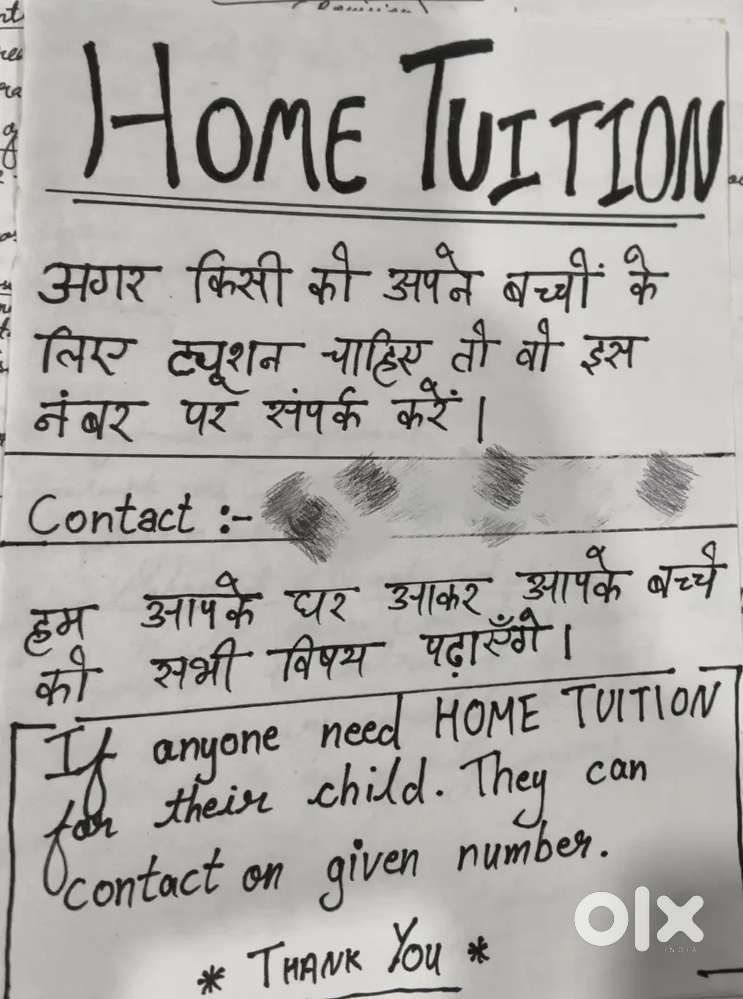 HOME TUITION
अगर किसी को अपने बच्चों के
लिए ट्यूशन चाहिए तो वो इस
नंबर पर संपर्क करें।
Contact :-
हम आपके घर आकर आपके बच्चे
को सभी विषय पढ़ाएँगे।
If anyone need HOME TUITION
for their child. They can
contact on given number.
* THANK YOU *
olx
INDIA